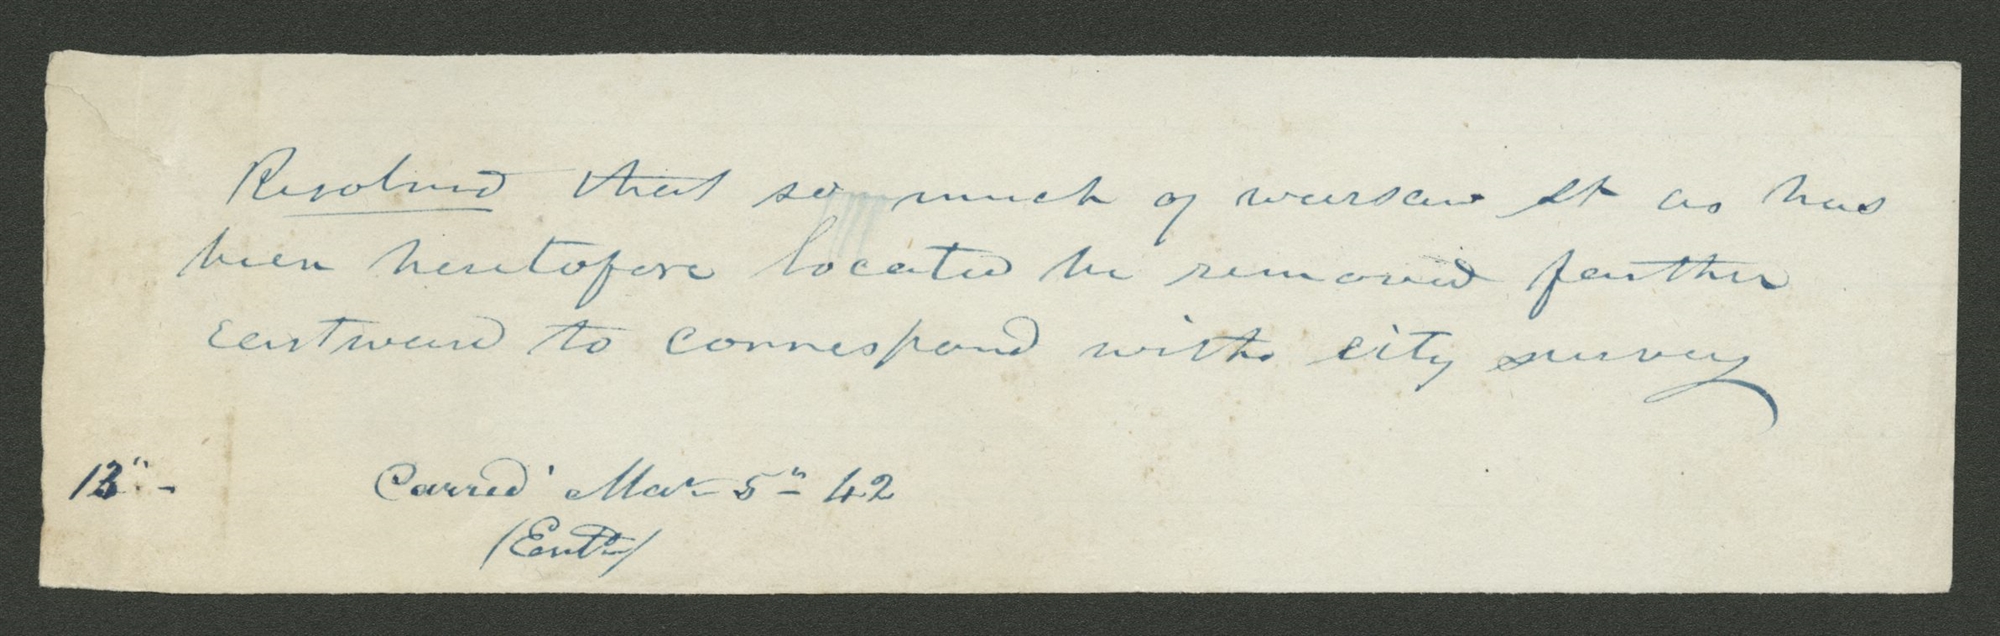 Resolved that so much of warsaw St as has
been heretofore located be removed farther
Eastward to correspond with city survey
13" - Carried Mar 5th 42
(Entd)